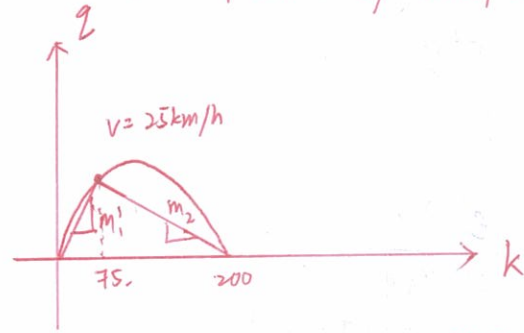 q
v = 25km/h
m₁
m₂
75.
200
k